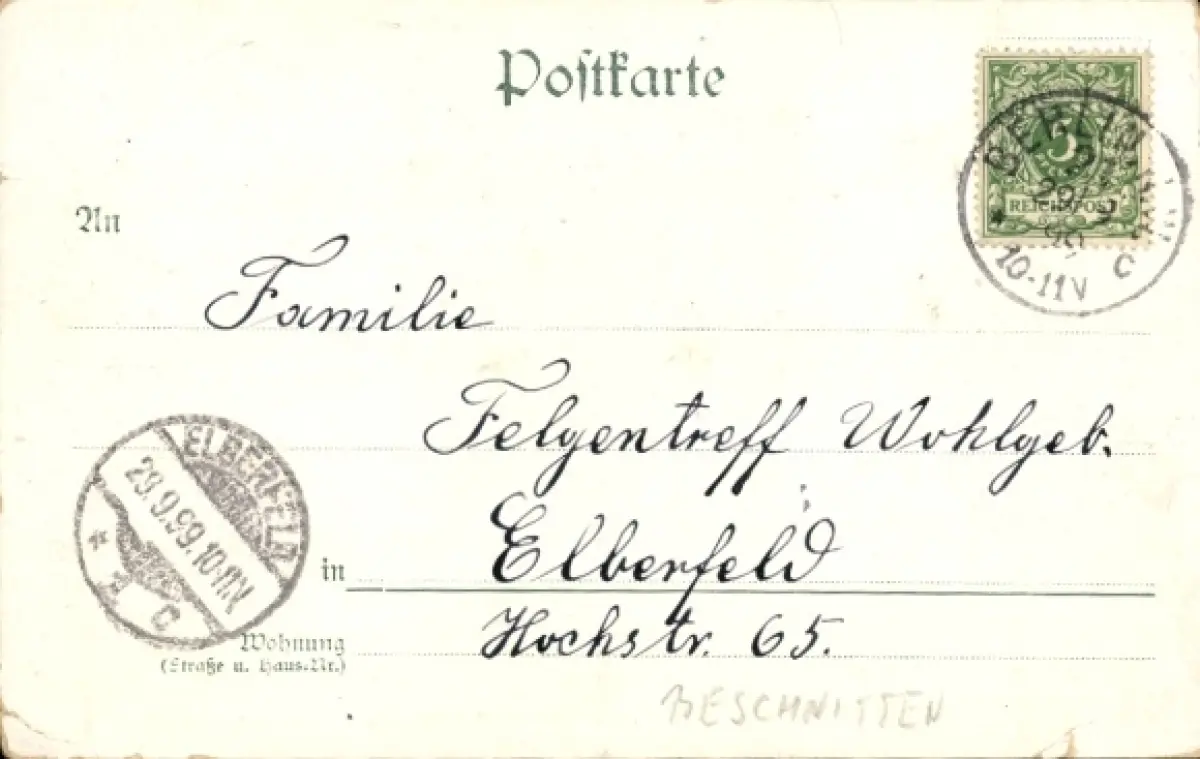 Postkarte
5
REICHSPOST
BERLIN
99
10-11V
C
An
Familie
Felgentreff Wohlgeb.
Elberfeld
in
Hochstr. 65.
Wohnung
(Straße u. Haus-Nr.)
ELBERFELD
29.9.99.10-11V
* C
BESCHNITTEN